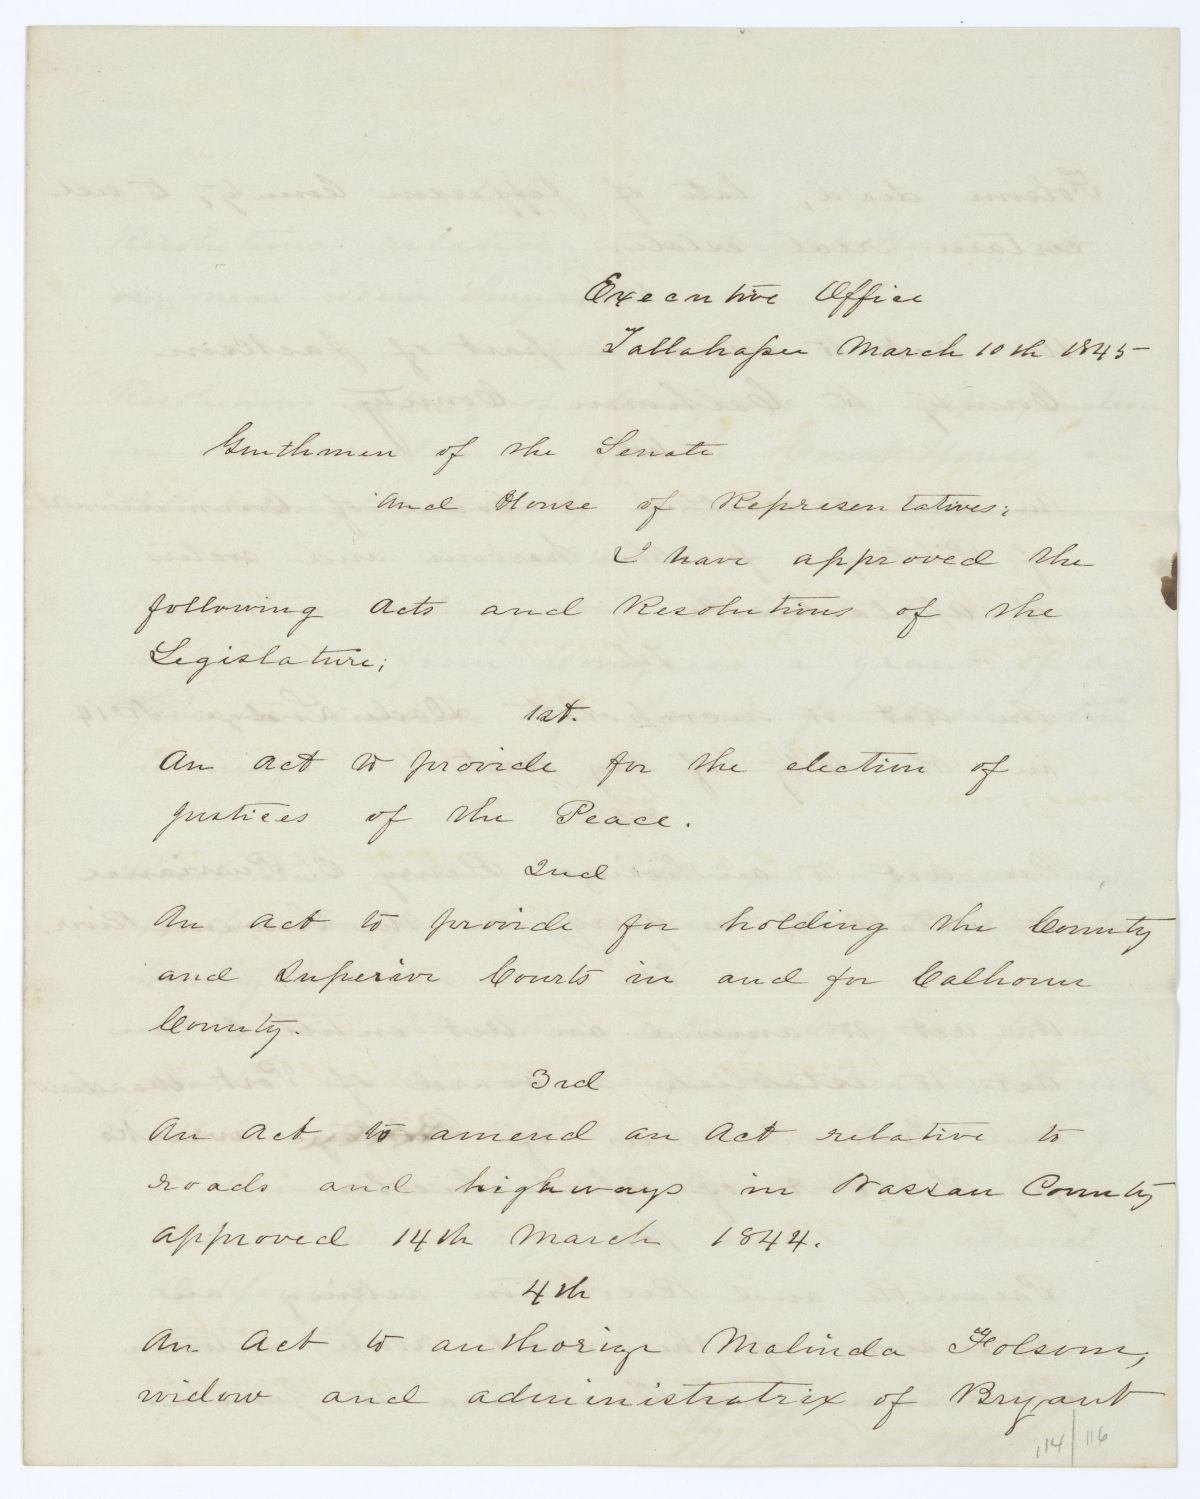 Executive Office
Tallahassee March 10th 1845
Gentlemen of the Senate
and House of Representatives;
I have approved the
following Acts and Resolutions of the
Legislature;
1st.
An Act to provide for the election of
justices of the Peace.
2nd
An Act to provide for holding the County
and Superior Courts in and for Calhoun
County.
3rd
An Act to amend an Act relative to
roads and highways in Nassau County
approved 14th March 1844.
4th
An Act to authorize Malinda Folsom,
widow and administratrix of Bryant
114 | 116